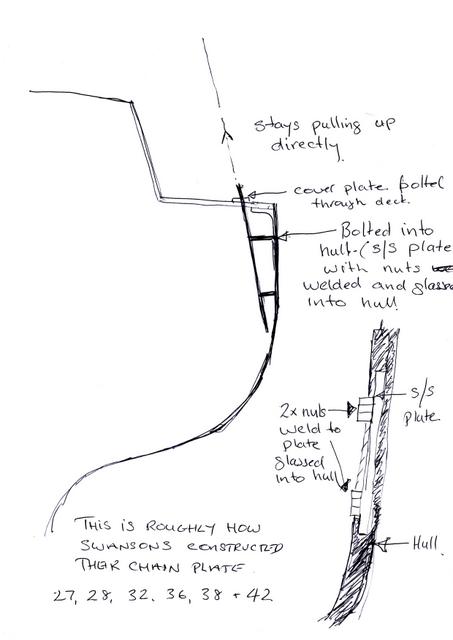 stays pulling up
directly.
cover plate bolted
through deck.
Bolted into
hull. (S/S plate
with nuts
welded and glassed
into hull
S/S
plate
2x nuts
weld to
plate
glassed
into hull
Hull.
THIS IS ROUGHLY HOW
SWANSONS CONSTRUCTED
THEIR CHAIN PLATE.
27, 28, 32, 36, 38 + 42